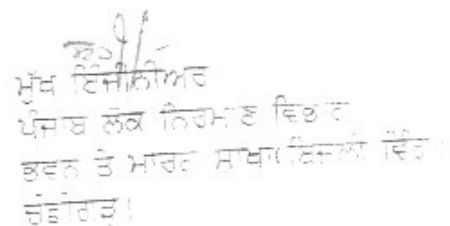 ਮੁੱਖ ਇੰਜੀਨੀਅਰ
ਪੰਜਾਬ ਲੋਕ ਨਿਰਮਾਣ ਵਿਭਾਗ
ਭਵਨ ਤੇ ਮਾਰਗ ਸ਼ਾਖਾ ਬਿਜਲੀ ਵਿੰਗ
ਚੰਡੀਗੜ੍ਹ।